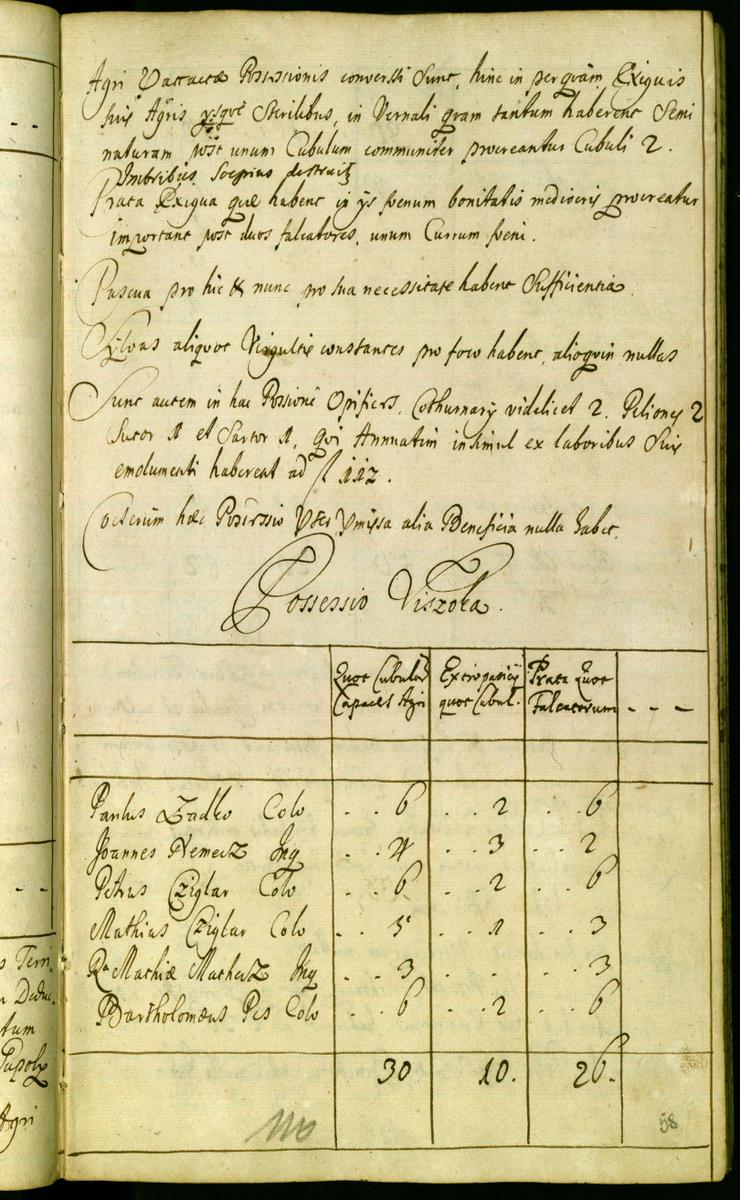 Agri Possessionis conversi sunt, hinc in perquàm Exiguis
suis Agris ysque Sterilibus, in Vernali quam tantum habent Semi
naturam post unum Cubulum communiter procreantur Cubuli 2.
Imbribus Soepius destruit
Prata Exigua quae habent in ys foenum bonitatis mediocris procreatur
important post duos falcatores, unum Currum foeni.
Pascua pro hic et nunc pro sua necessitate habent Sufficientia.
Sylvas aliquot Virgultis constantes pro foco habent, alioquin nullas
Sunt autem in hac Possione Opifices, Cothurnarÿ videlicet 2. Peliones 2
Sutor 1 et Sartor 1, qui Annuatim insimul ex laboribus Suis
emolumenti haberent ad fl 112.
Coeterum haec Possessio alia Beneficia nulla habet.
Possessio Viszoka.
Quot Cubulor Capaces Agri
Extirpaticÿ quot Cubul.
Prata Quot Falcatorum
- - -
Paulus Zadko Colo . . 6 . . 2 . . 6
Joannes Nemecz Inq . . 4 . . 3 . . 2
Petrus Cziglar Colo . . 6 . . 2 . . 6
Mathius Cziglar Colo . . 5 . . 1 . . 3
Ra Mathiae Matheiz Inq . . 3 . . . . . 3
Bartholomaeus Pes Colo . . 6 . . 2 . . 6
30 10. 26.
58